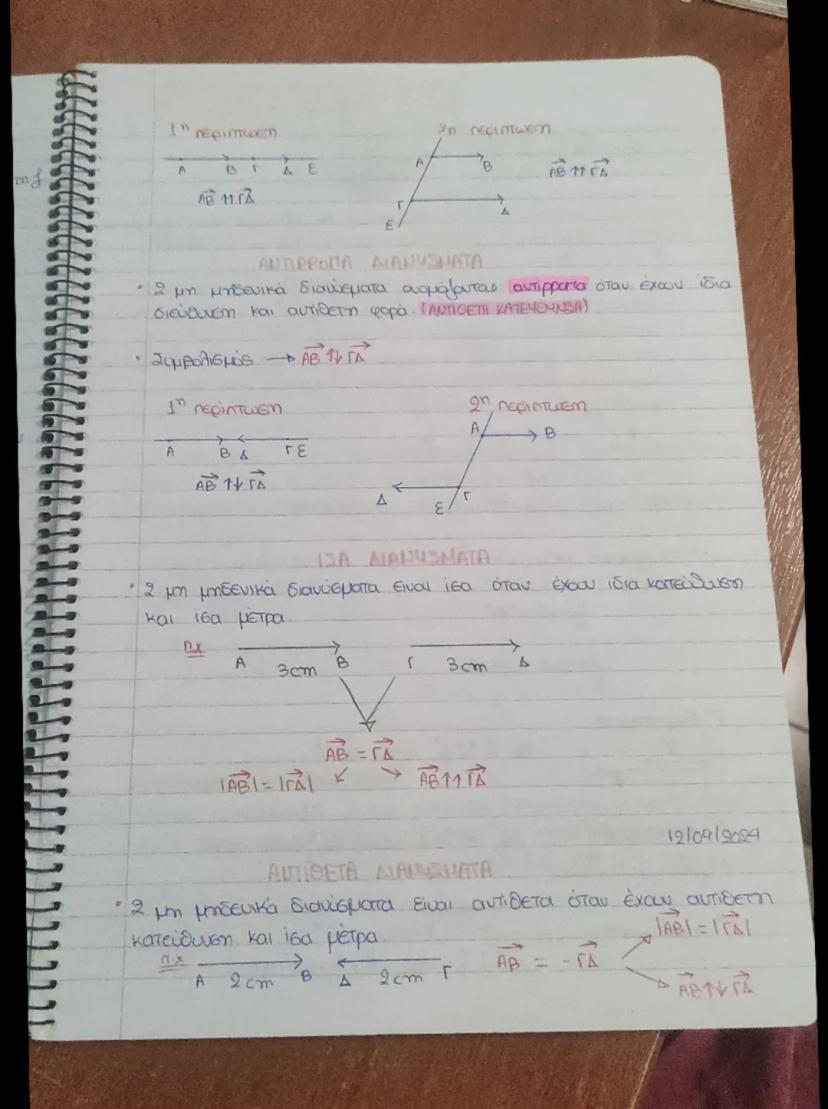 1η περίπτωση
2η περίπτωση
Α Β Γ Δ Ε
Α Β
ΑΒ ↑↑ ΓΔ
ΑΒ ↑↑ ΓΔ
Γ Δ
Ε
ΑΝΤΙΡΡΟΠΑ ΔΙΑΝΥΣΜΑΤΑ
• 2 μη μηδενικά διανύσματα ονομάζονται αντίρροπα όταν έχουν ίδια
διεύθυνση και αντίθετη φορά. (ΑΝΤΙΘΕΤΗ ΚΑΤΕΥΘΥΝΣΗ)
• Συμβολισμός → ΑΒ ↑↓ ΓΔ
1η περίπτωση
2η περίπτωση
Α Β Δ Γ Ε
Α Β
ΑΒ ↑↓ ΓΔ
Δ Γ
Ε
ΙΣΑ ΔΙΑΝΥΣΜΑΤΑ
• 2 μη μηδενικά διανύσματα είναι ίσα όταν έχουν ίδια κατεύθυνση
και ίσα μέτρα.
π.χ Α 3cm Β Γ 3cm Δ
ΑΒ = ΓΔ
|ΑΒ| = |ΓΔ| ↙ ↘ ΑΒ ↑↑ ΓΔ
12/09/2024
ΑΝΤΙΘΕΤΑ ΔΙΑΝΥΣΜΑΤΑ
• 2 μη μηδενικά διανύσματα είναι αντίθετα όταν έχουν αντίθετη
κατεύθυνση και ίσα μέτρα.
|ΑΒ| = |ΓΔ|
π.χ Α 2cm Β Δ 2cm Γ ΑΒ = -ΓΔ
ΑΒ ↑↓ ΓΔ